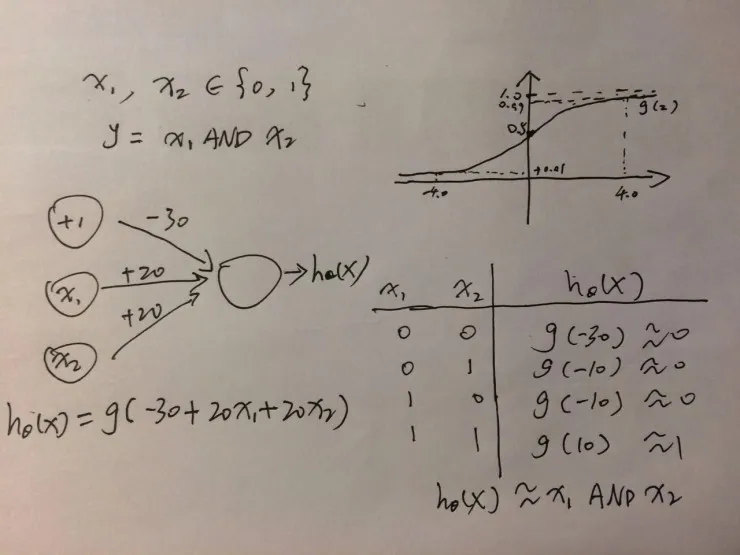 x₁, x₂ ∈ {0, 1}
y = x₁ AND x₂
1.0
0.99
0.5
g(z)
+0.01
-4.0
4.0
+1
-30
x₁
+20
x₂
+20
→ hθ(x)
hθ(x) = g(-30+20x₁+20x₂)
x₁ x₂ hθ(x)
0 0 g(-30) ≈0
0 1 g(-10) ≈0
1 0 g(-10) ≈0
1 1 g(10) ≈1
hθ(x) ≈ x₁ AND x₂